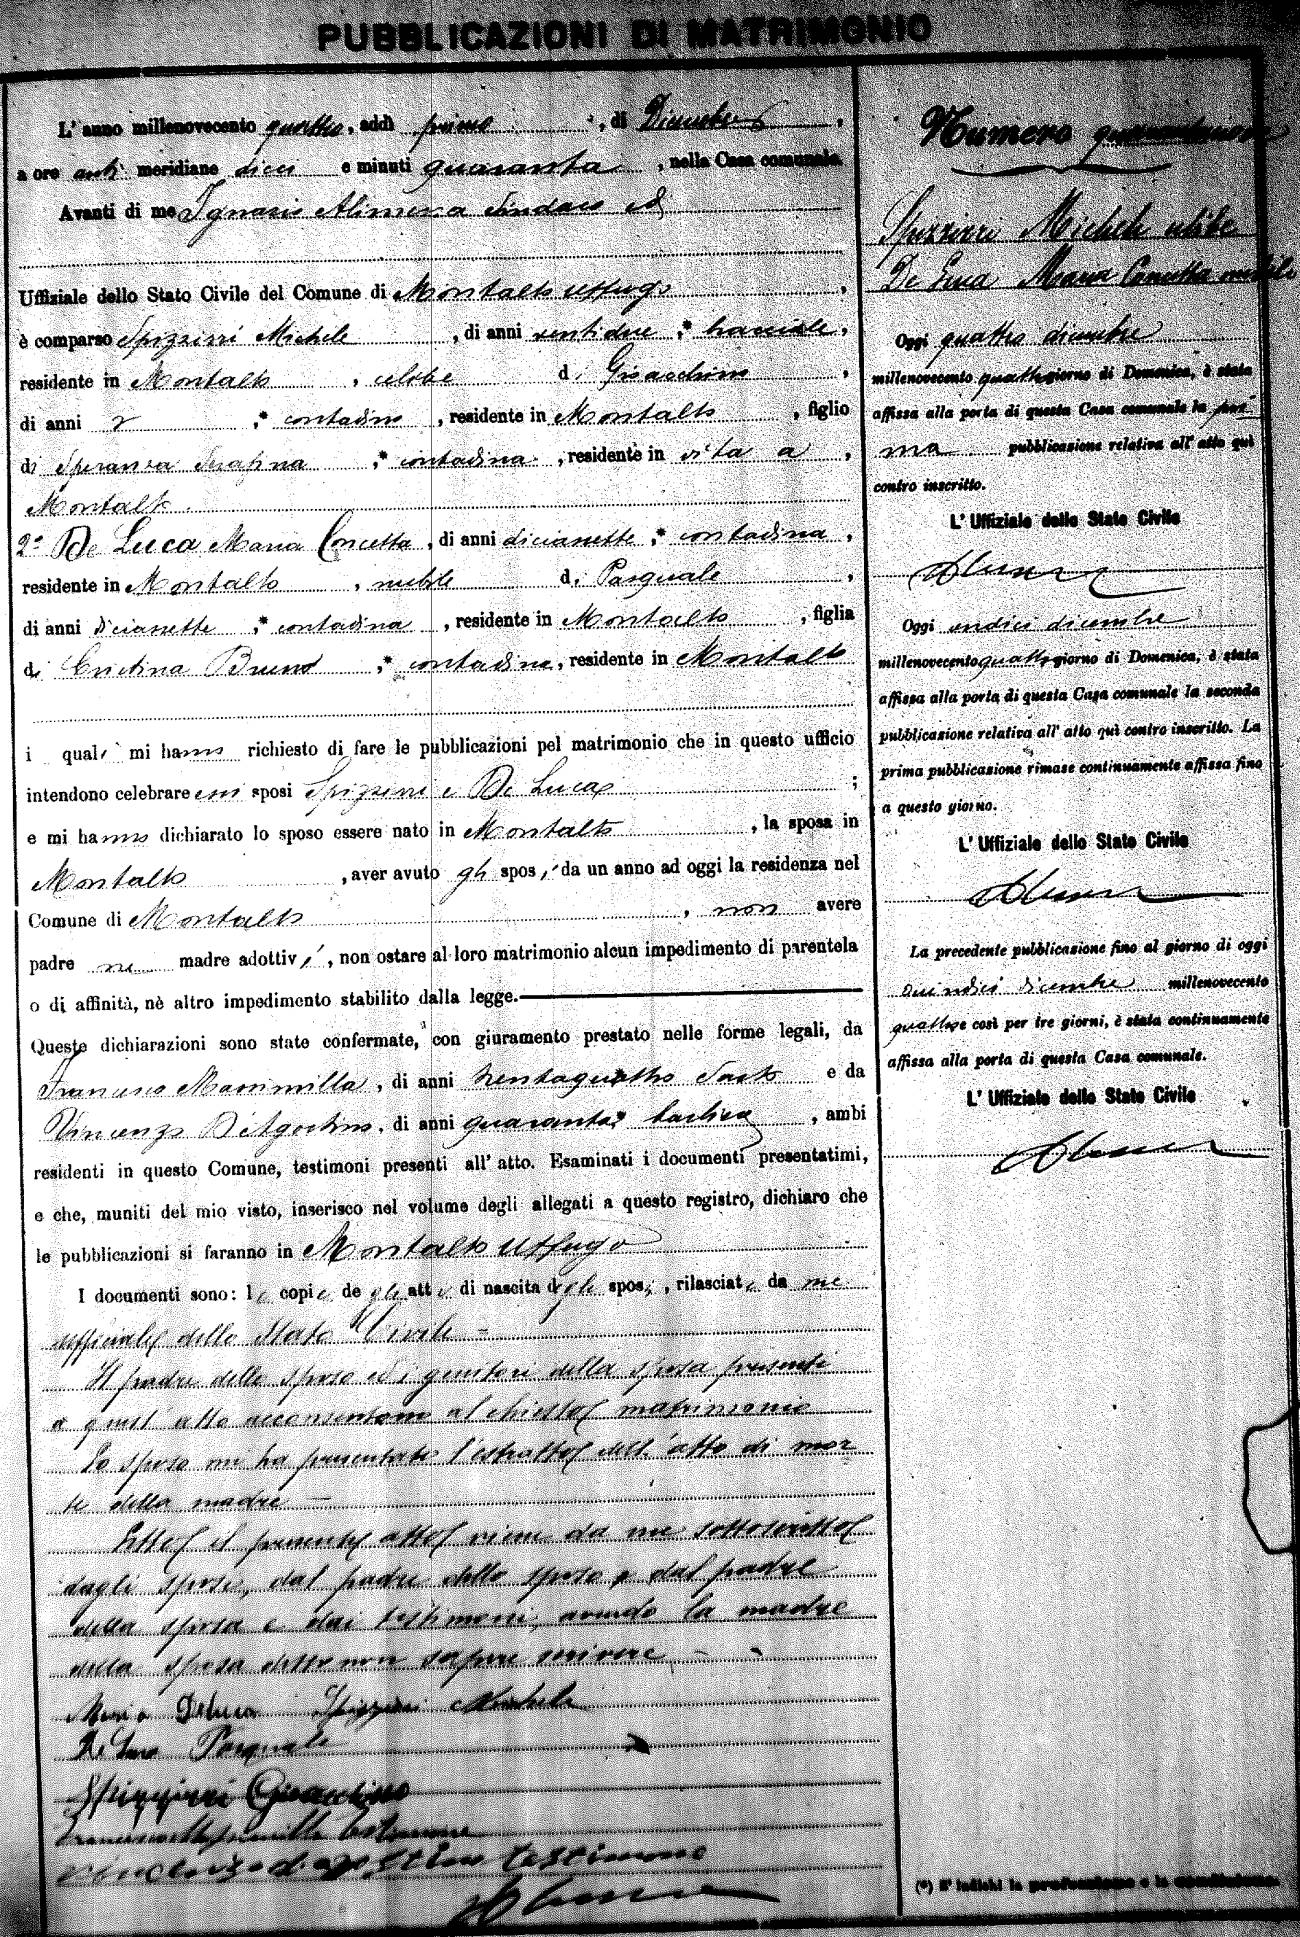 PUBBLICAZIONI DI MATRIMONIO
L'anno millenovecento quattro, addì primo, di Dicembre,
a ore anti meridiane dieci e minuti quaranta, nella Casa comunale.
Avanti di me Ignazio Alimena Sindaco ed
Uffiziale dello Stato Civile del Comune di Montalto Uffugo,
è comparso Spizzirri Michele, di anni ventidue,* bracciale,
residente in Montalto, celibe di Gioacchino,
di anni,* contadino, residente in Montalto, figlio
di Speranza Serafina,* contadina, residente in vita a,
Montalto.
2° De Luca Maria Concetta, di anni diciassette,* contadina,
residente in Montalto, nubile di Pasquale,
di anni diciassette,* contadina, residente in Montalto, figlia
di Cristina Bruno,* contadina, residente in Montalto
i quali mi hanno richiesto di fare le pubblicazioni pel matrimonio che in questo ufficio
intendono celebrare essi sposi Spizzirri e De Luca;
e mi hanno dichiarato lo sposo essere nato in Montalto, la sposa in
Montalto, aver avuto gli sposi da un anno ad oggi la residenza nel
Comune di Montalto, non avere
padre nè madre adottivi, non ostare al loro matrimonio alcun impedimento di parentela
o di affinità, nè altro impedimento stabilito dalla legge.
Queste dichiarazioni sono state confermate, con giuramento prestato nelle forme legali, da
Francesco Marsimilla, di anni trentaquattro Sarto e da
Vincenzo D'Agostino, di anni quaranta, ambi
residenti in questo Comune, testimoni presenti all'atto. Esaminati i documenti presentatimi,
e che, muniti del mio visto, inserisco nel volume degli allegati a questo registro, dichiaro che
le pubblicazioni si faranno in Montalto Uffugo
I documenti sono: le copie de gli atti di nascita degli sposi, rilasciate da me
uffiziale dello Stato Civile =
Il padre dello sposo ed i genitori della sposa presenti
a quest'atto acconsentono al chiesto matrimonio
Lo sposo mi ha presentato l'estratto dell'atto di mor
te della madre —
Letto il presente atto viene da me sottoscritto
dagli sposi, dal padre dello sposo e dal padre
della sposa e dai testimoni, avendo la madre
della sposa detto non sapere scrivere
Maria DeLuca Spizzirri Michele
De Luca Pasquale
Spizzirri Gioacchino
Francesco testimone
Vincenzo d'agostino testimone
Alimena
Numero
Spizzirri Michele celibe
De Luca Maria Concetta nubile
Oggi quattro dicembre
millenovecento quattro giorno di Domenica, è stata
affissa alla porta di questa Casa comunale la pri
ma pubblicazione relativa all'atto quì
contro inscritto.
L'Uffiziale dello Stato Civile
Alimena
Oggi undici dicembre
millenovecento quattro giorno di Domenica, è stata
affissa alla porta di questa Casa comunale la seconda
pubblicazione relativa all'atto quì contro inscritto. La
prima pubblicazione rimase continuamente affissa fino
a questo giorno.
L'Uffiziale dello Stato Civile
Alimena
La precedente pubblicazione fino al giorno di oggi
quindici dicembre millenovecento
quattro e così per tre giorni, è stata continuamente
affissa alla porta di questa Casa comunale.
L'Uffiziale dello Stato Civile
Alimena
(*) S'indichi la professione o la condizione.